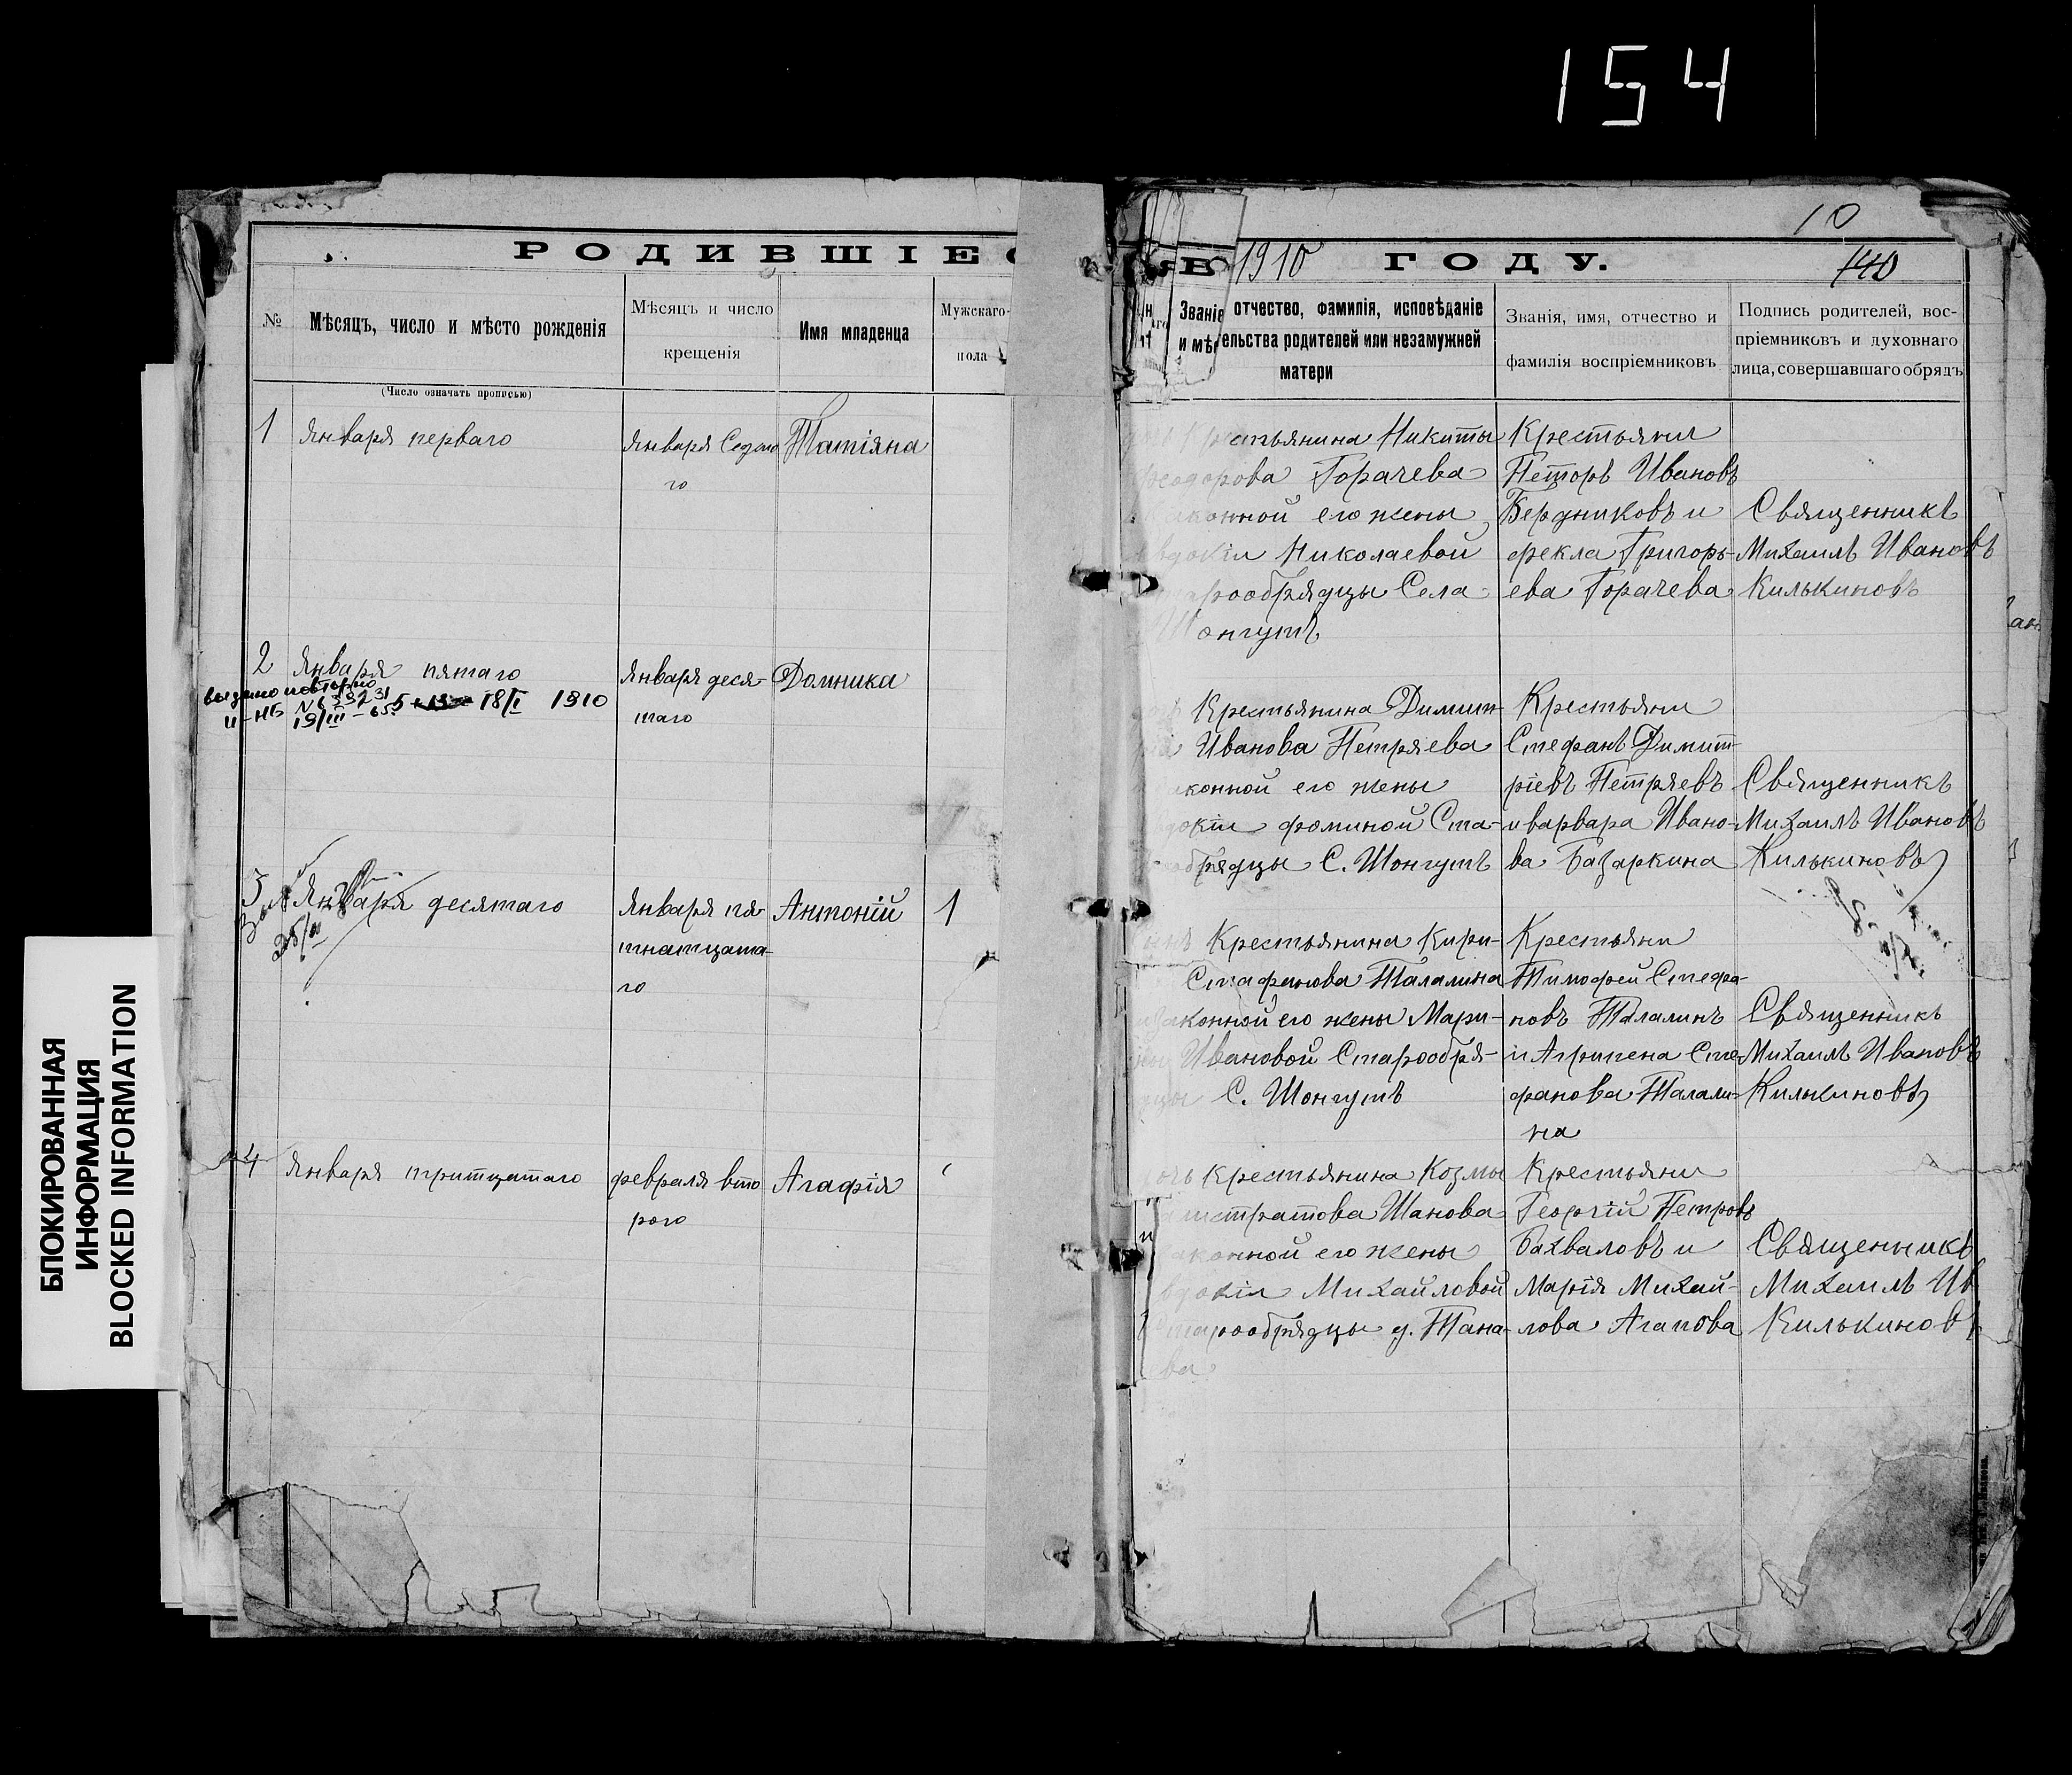 154
10
РОДИВШІЕС
ВЪ 1910 ГОДУ.
140
№
Мѣсяцъ, число и мѣсто рожденія
(Число означать прописью)
Мѣсяцъ и число
крещенія
Имя младенца
Мужскаго
пола
Званіе отчество, фамилія, исповѣданіе
и мѣ ельства родителей или незамужней
матери
Званія, имя, отчество и
фамилія воспріемниковъ
Подпись родителей, вос-
пріемниковъ и духовнаго
лица, совершавшаго обрядъ
1
Января перваго
Января Седмо
го
Татіяна
Крестьянина Никиты
Феодорова Горачева
законной его жены
Николаевой
Старообрядцы Села
Шонгутъ
Крестьяни
Петоръ Ивановъ
Бердниковъ и
фекла Григорь-
ева Горачева
Священникъ
Михаилъ Ивановъ
Килькиновъ
2
Января пятаго
выдано повторно
18/I 1910
II-НБ
19/III-65
Января деся-
таго
Домника
Крестьянина Димит-
Иванова Петряева
законной его жены
фоминой Ста-
обрядцы С. Шонгутъ
Крестьяни
Стефанъ Димит-
ріевъ Петряевъ
и варвара Ивано-
ва Базаркина
Священникъ
Михаилъ Ивановъ
Килькиновъ
3
Января десятаго
Января пя-
тнатцата-
го
Антоній
1
Крестьянина Кири-
Стафанова Талалина
законной его жены Мари-
ны Ивановой Старообря-
дцы С. Шонгутъ
Крестьяни
Тимофей Стефа-
новъ Талалинъ
и Агрипена Сте-
фанова Талали-
на
Священникъ
Михаилъ Ивановъ
Килькиновъ
4
Января тритцатаго
февраля вто
раго
Агафія
Крестьянина Козмы
Шанова
законной его жены
Михайловой
Старообрядцы д. Тана-
ва
Крестьяни
Георгій Петровъ
Бахваловъ и
Марія Михай-
лова Агапова
Священникъ
Михаилъ Ив
Килькиновъ
БЛОКИРОВАННАЯ
ИНФОРМАЦИЯ
BLOCKED INFORMATION